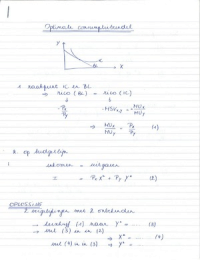 Optimale consumptiebundel
Y
X
1. raaklijn IC en BL
⇒ rico (BL) = rico (IC)
-Px/Py -MRSx,y = -MUx/MUy
⇒ MUx/MUy = Px/Py (1)
2. op budgetlijn
inkomen = uitgaven
I = Px X* + Py Y* (2)
OPLOSSING
2 vergelijkingen met 2 onbekenden
(1) naar Y* = ... (3)
(3) in (2)
⇒ X* = ... (4)
(4) in (3) ⇒ Y* = ...